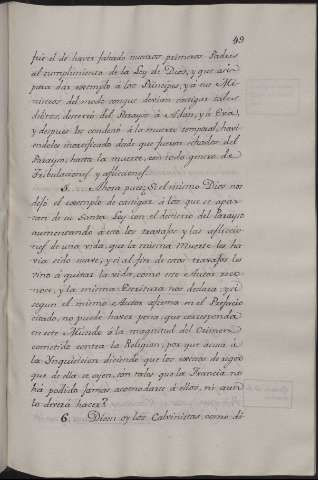 49
fue el de haver faltado nuestros primeros Padres
al cumplimiento de la Ley de Dios, y que assi
para dar exemplo à los Principes, y à sus Mi-
nistros del modo conque devian castigar tales
delitos, desterrò del Parayso à Adan, y à Eva,
y despues los condenò à la muerte temporal, havi-
endolos mortificado desde que fueron echados del
Parayso, hasta la muerte, con todo genero de
Tribulaciones y aflicciones.
5. Ahora pues, Si el mismo Dios nos
dejò el exemplo de castigar à los que se apar-
tan de su Santa Ley con el destierro del Parayso
aumentando à esto los travajos y las afliccio-
nes de una vida, que la misma muerte les ha-
via sido suave, y si al fin de estos travajos les
vino à quitar la vida, como este Autor reco-
noce, y la misma Escritura nos declara; y si
segun el mismo Autor afirma en el Prefacio
citado, no puede haver pena, que corresponda
en este Mundo à la magnitud del Crimen
cometido contra la Religion; por que acusa à
la Inquisicion diciendo que los excesos de rigor
que de ella se oyen, son tales que la Francia no
ha podido jamas acomodarse à ellos, ni que-
lo deverà hacer?
6. Dicen oy los Calvinistas, como di-